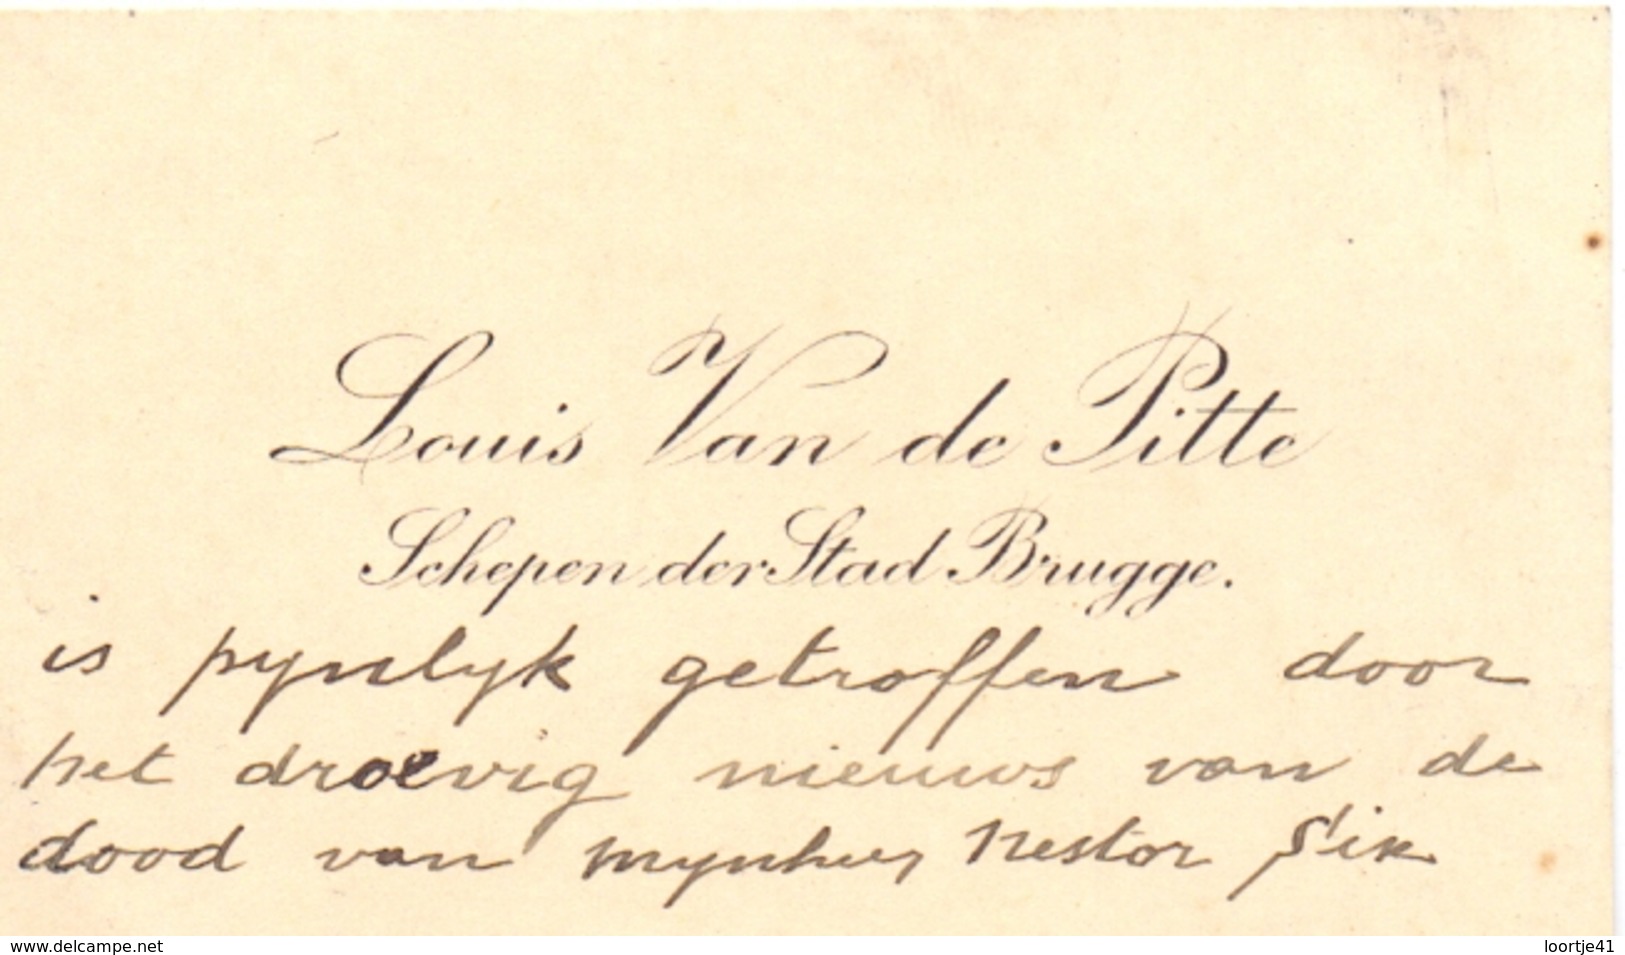 Louis Van de Pitte
Schepen der Stad Brugge.
is pynlyk getroffen door
het droevig nieuws van de
dood van mynheer Nestor
www.delcampe.net
loortje41